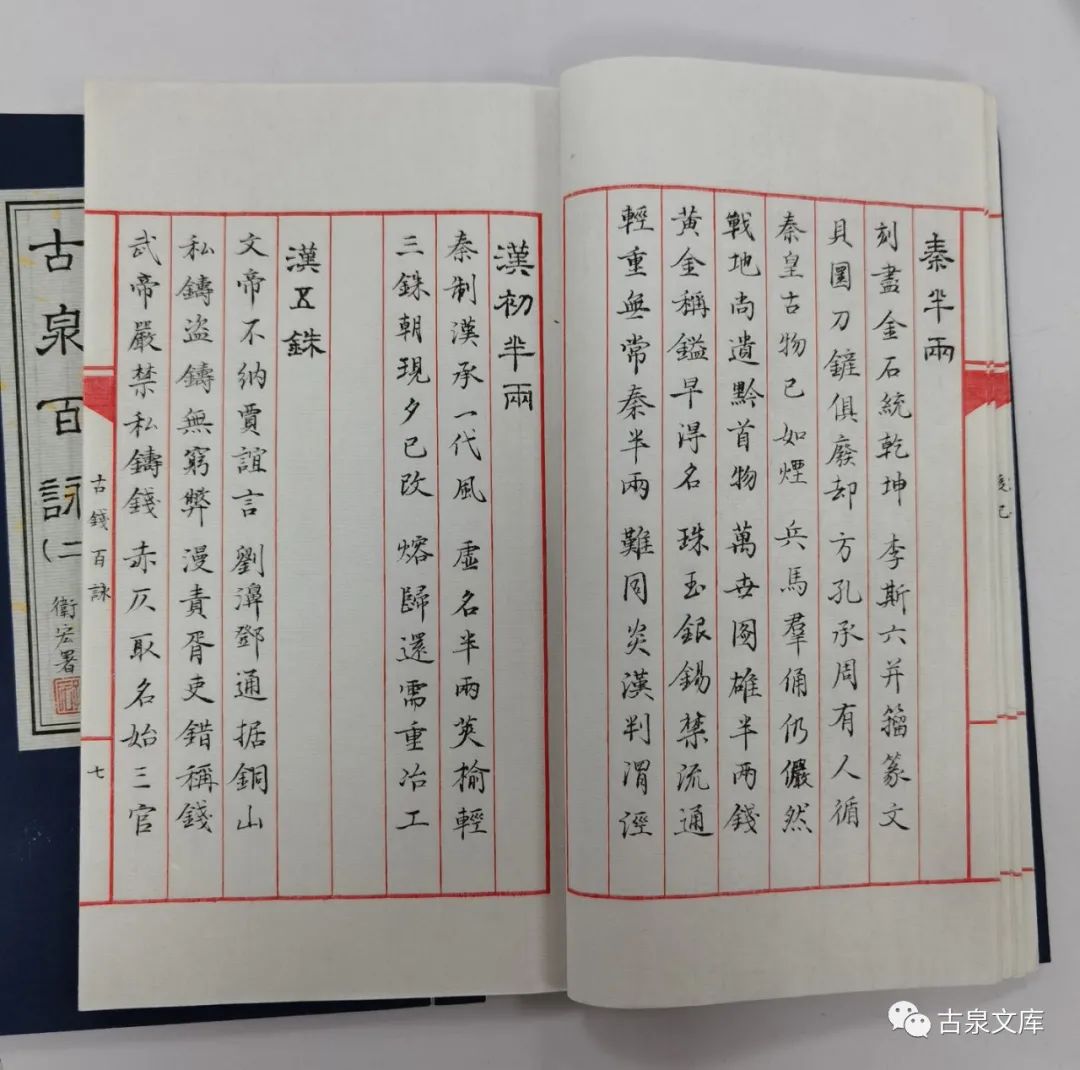 秦半兩
刻盡金石統乾坤 李斯六并籀篆文
貝圜刀鏟俱廢却 方孔承周有人循
秦皇古物已如煙 兵馬羣俑仍儼然
戰地尚遺黔首物 萬世圖雄半兩錢
黄金稱鎰早得名 珠玉銀錫禁流通
輕重無常秦半兩 難同炎漢判渭涇
漢初半兩
秦制漢承一代風 虛名半兩英榆輕
三銖朝現夕已改 熔歸還需重冶工
漢五銖
文帝不納賈誼言 劉濞鄧通据銅山
私鑄盜鑄無窮弊 漫責胥吏錯稱錢
武帝嚴禁私鑄錢 赤仄取名始三官
古錢百詠
七
古泉百詠(二)
衛宏署
古泉文库